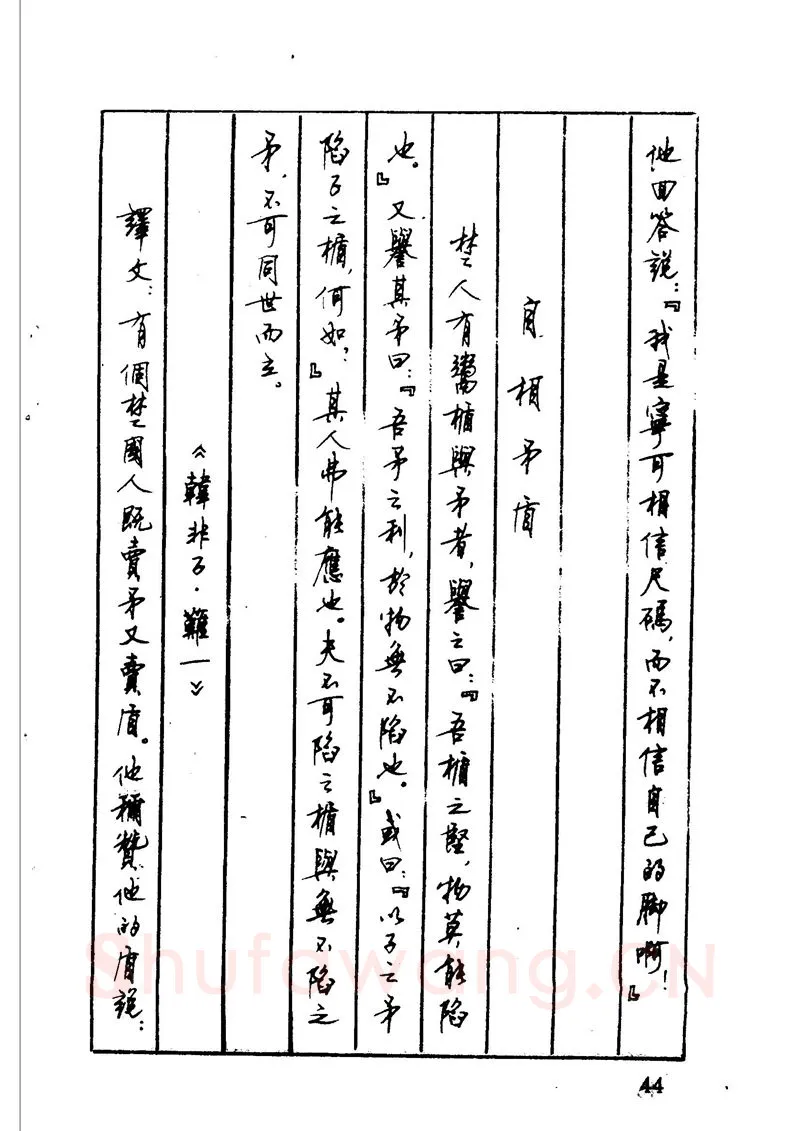 他回答說：『我是寧可相信尺碼，而不相信自己的脚啊！』
自相矛盾
楚人有鬻楯與矛者，譽之曰：『吾楯之堅，物莫能陷
也。』又譽其矛曰：『吾矛之利，於物無不陷也。』或曰：『以子之矛
陷子之楯，何如？』其人弗能應也。夫不可陷之楯與無不陷之
矛，不可同世而立。
《韓非子·難一》
譯文：有個楚國人既賣矛又賣盾。他稱贊他的盾說：
44
Shufawang.CN